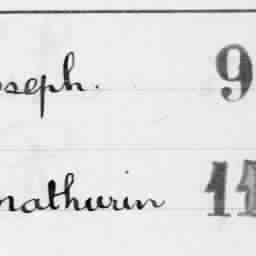 oseph. 9
mathurin 11